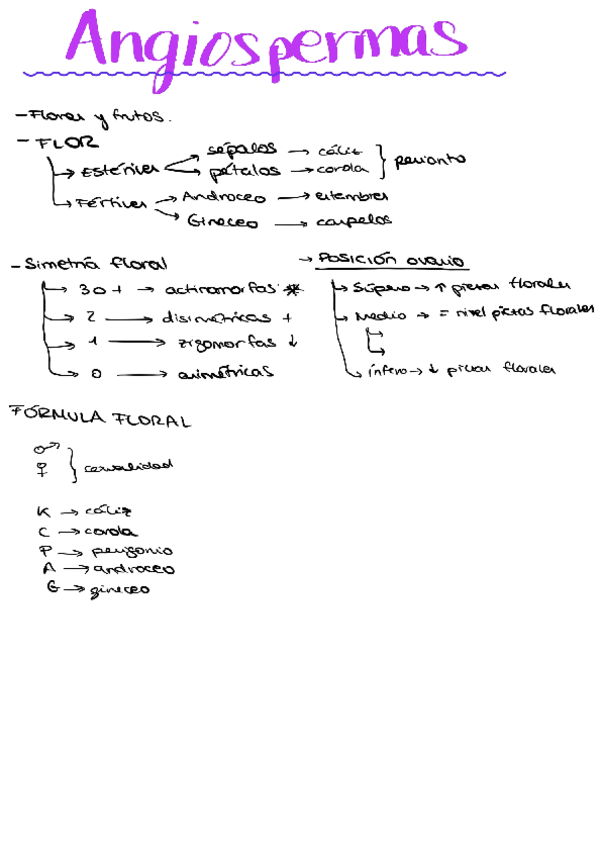 Angiospermas
- Flores y frutos.
- FLOR
→ Estériles → sépalos → cáliz } perianto
→ pétalos → corola
→ Fértiles → Androceo → estambres
→ Gineceo → carpelos
- Simetría floral
→ 3 o + → actinomorfas *
→ 2 → disimétricas +
→ 1 → zigomorfas ↓
→ 0 → asimétricas
→ Posición ovario
→ Súpero → ↑ piezas florales
→ Medio → = nivel piezas florales
→ ínfero → ↓ piezas florales
FÓRMULA FLORAL
♂
♀ } sexualidad
K → cáliz
C → corola
P → perigonio
A → androceo
G → gineceo